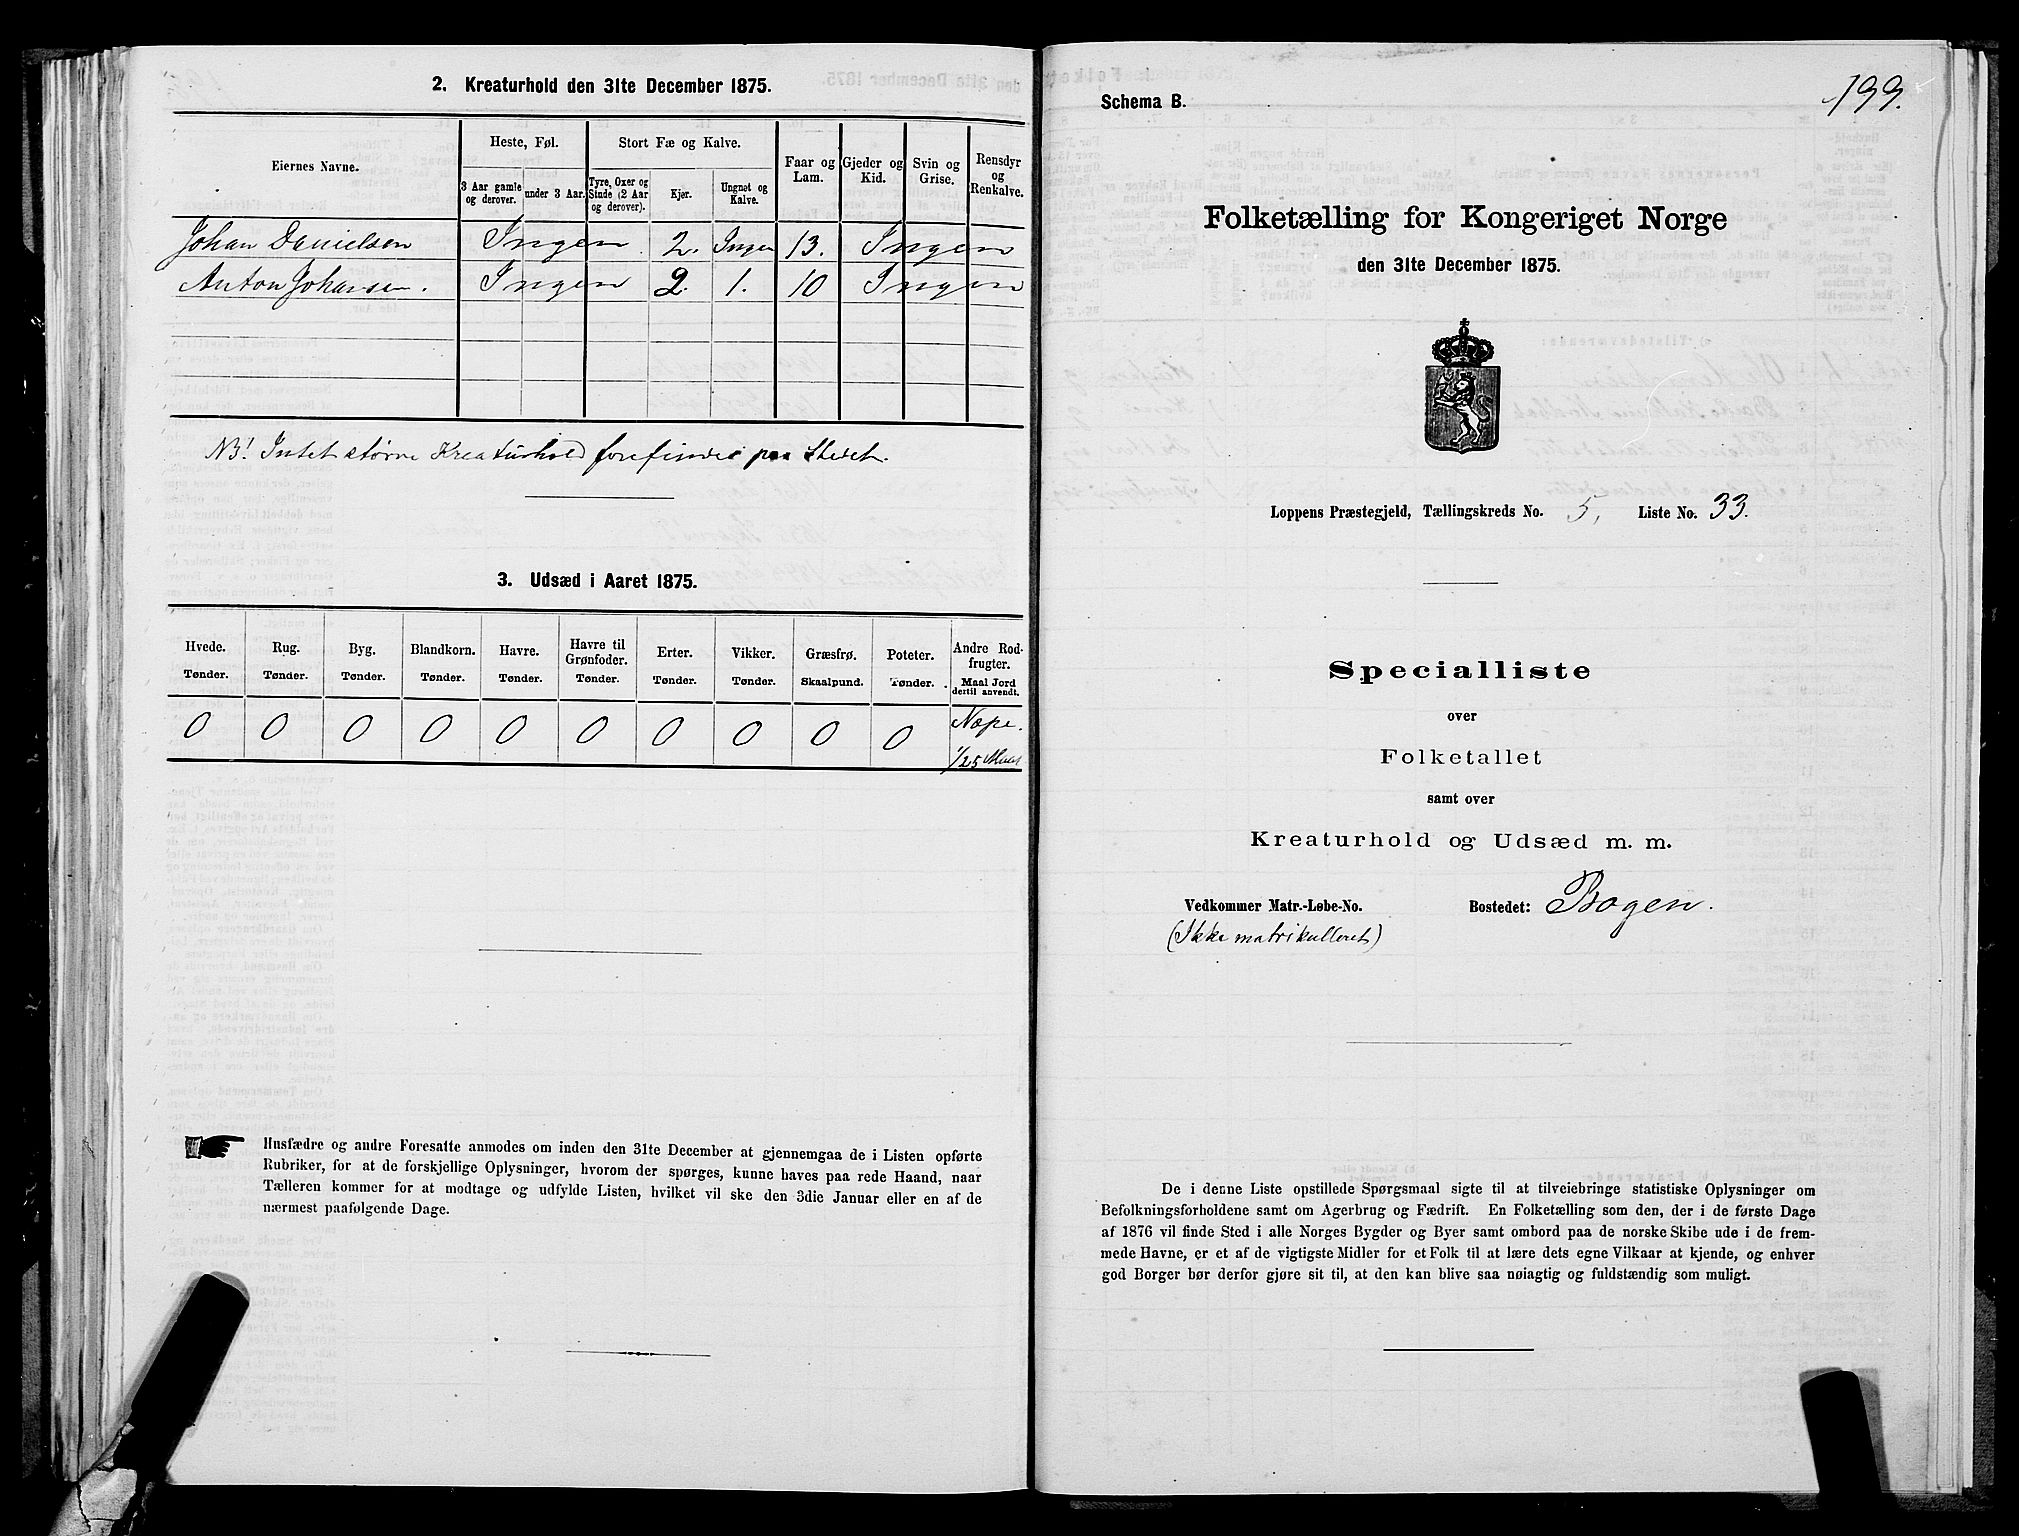 2. Kreaturhold den 31te December 1875.
Eiernes Navne.
Heste, Føl.
Stort Fæ og Kalve.
Faar og Lam.
Gjeder og Kid.
Svin og Grise.
Rensdyr og Renkalve.
3 Aar gamle og derover.
under 3 Aar.
Tyre, Oxer og Stude (2 Aar og derover).
Kjør.
Ungnøt og Kalve.
Johan Danielsen Ingen 2. Ingen 13. Ingen
Anton Johansen. Ingen 2. 1. 10 Ingen
NB! Intet større Kreaturhold forefindes paa Stedet.
3. Udsæd i Aaret 1875.
Hvede. Rug. Byg. Blandkorn. Havre. Havre til Grønfoder. Erter. Vikker. Græsfrø. Poteter. Andre Rodfrugter.
Tønder. Tønder. Tønder. Tønder. Tønder. Tønder. Tønder. Tønder. Skaalpund. Tønder. Maal Jord dertil anvendt.
0 0 0 0 0 0 0 0 0 0 Næpe.
1/25 Maal
Husfædre og andre Foresatte anmodes om inden den 31te December at gjennemgaa de i Listen opførte
Rubriker, for at de forskjellige Oplysninger, hvorom der spørges, kunne haves paa rede Haand, naar
Tælleren kommer for at modtage og udfylde Listen, hvilket vil ske den 3die Januar eller en af de
nærmest paafølgende Dage.
199.
Schema B.
Folketælling for Kongeriget Norge
den 31te December 1875.
Loppens Præstegjeld, Tællingskreds No. 5, Liste No. 33.
Specialliste
over
Folketallet
samt over
Kreaturhold og Udsæd m. m.
Vedkommer Matr.-Løbe-No. Bostedet: Bogen.
(Ikke matrikulleret)
De i denne Liste opstillede Spørgsmaal sigte til at tilveiebringe statistiske Oplysninger om
Befolkningsforholdene samt om Agerbrug og Fædrift. En Folketælling som den, der i de første Dage
af 1876 vil finde Sted i alle Norges Bygder og Byer samt ombord paa de norske Skibe ude i de frem-
mede Havne, er et af de vigtigste Midler for et Folk til at lære dets egne Vilkaar at kjende, og enhver
god Borger bør derfor gjøre sit til, at den kan blive saa nøiagtig og fuldstændig som muligt.